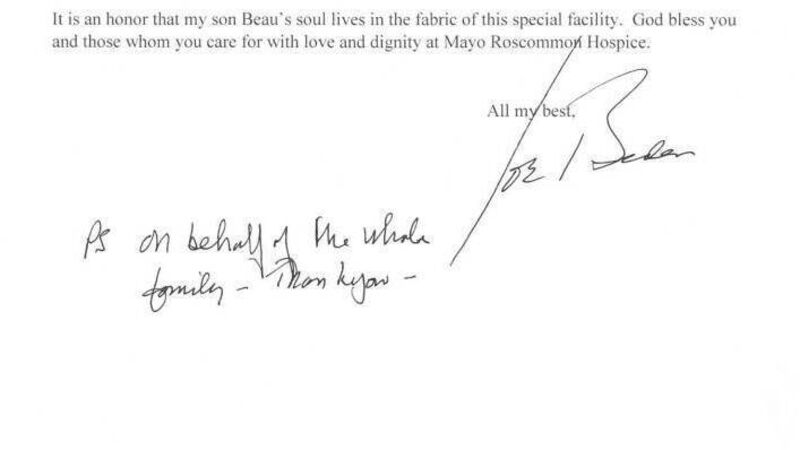 It is an honor that my son Beau's soul lives in the fabric of this special facility. God bless you
and those whom you care for with love and dignity at Mayo Roscommon Hospice.
All my best,
Joe Biden
PS on behalf of the whole
family - Thank you -